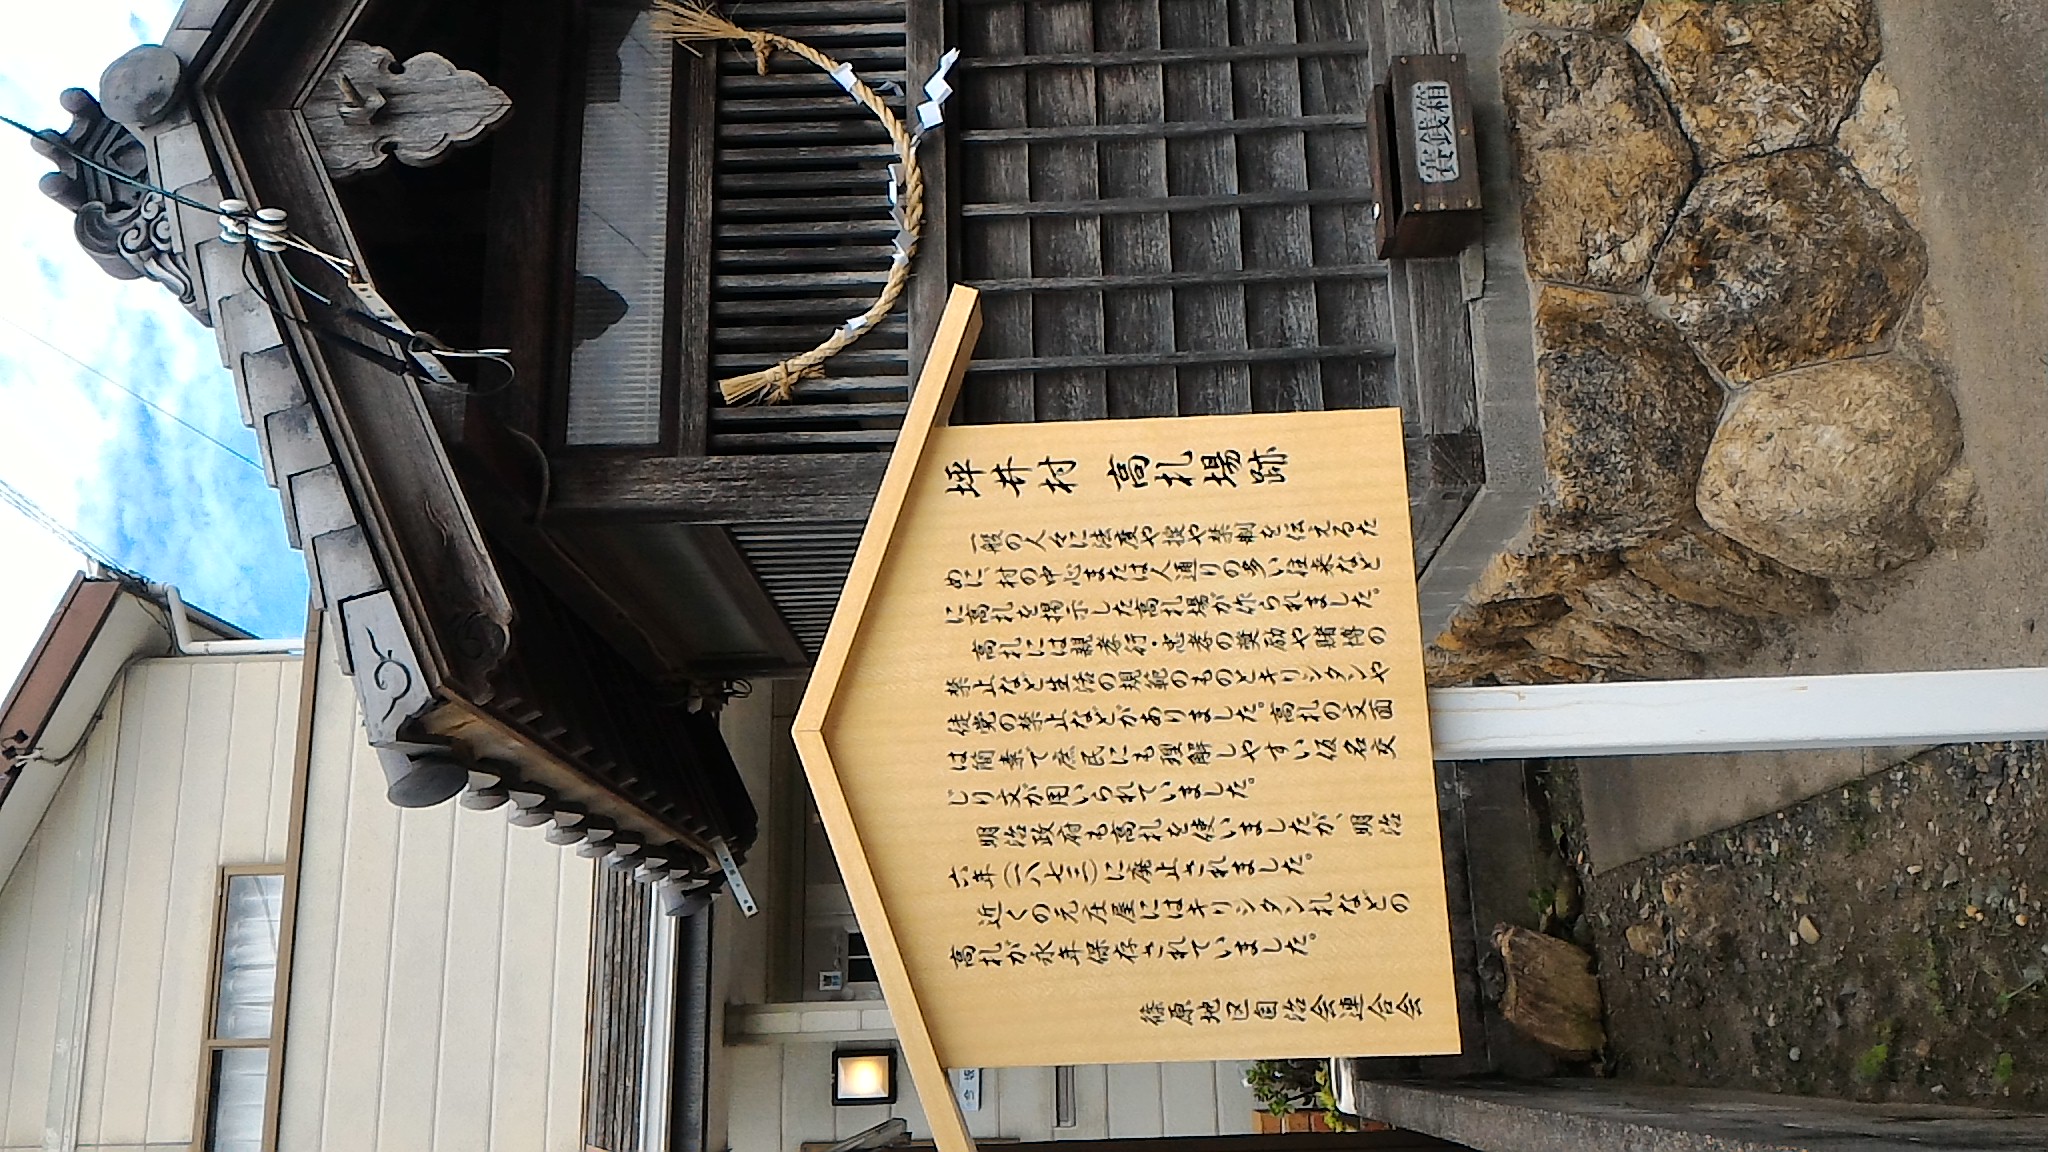 坪井村 高札場跡
一般の人々に法度や掟や禁制を伝えるた
めに、村の中心または人通りの多い往来など
に高札を掲示した高札場が作られました。
高札には親孝行・忠孝の奨励や賭博の
禁止など生活の規範のものとキリシタンや
徒党の禁止などがありました。高札の文面
は簡素で庶民にも理解しやすい仮名交
じり文が用いられていました。
明治政府も高札を使いましたが、明治
六年(一八七三)に廃止されました。
近くの元庄屋にはキリシタン札などの
高札が永年保存されていました。
篠原地区自治会連合会
賽銭箱